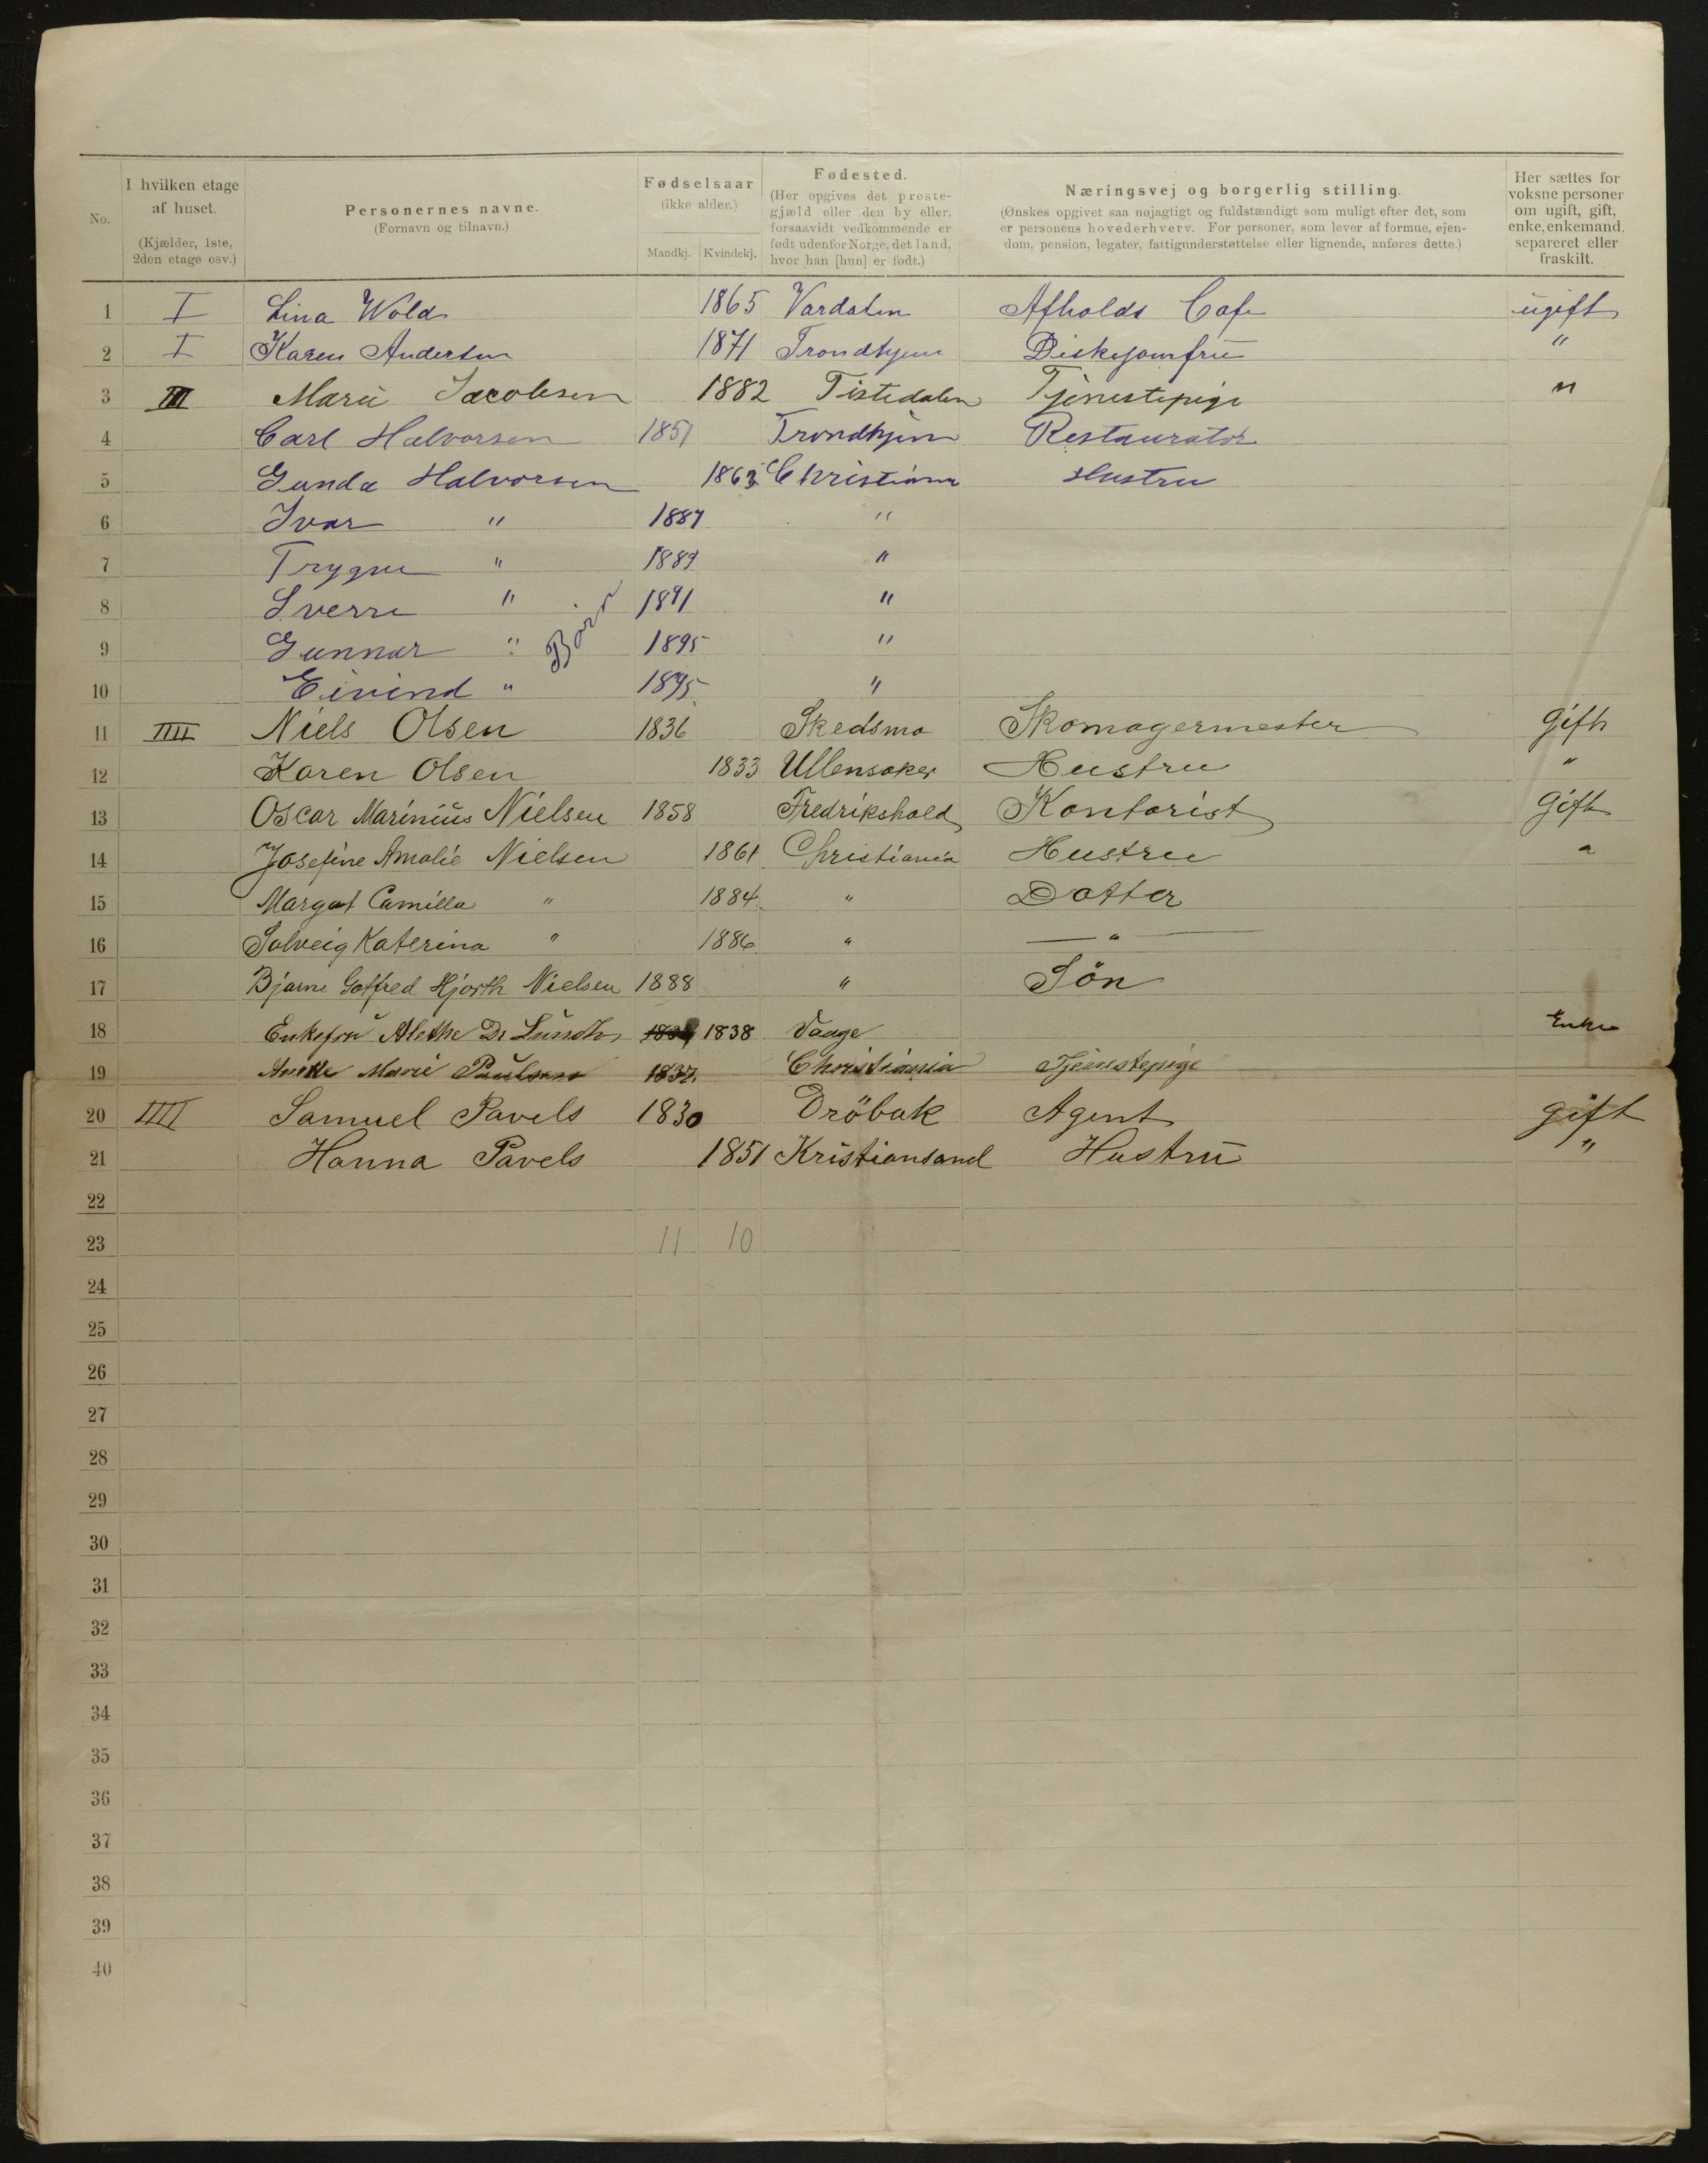 No.
I hvilken etage af huset. (Kjælder, 1ste, 2den etage osv.)
Personernes navne. (Fornavn og tilnavn.)
Fødselsaar (ikke alder.) Mandkj. Kvindekj.
Fødested. (Her opgives det prestegjæld eller den by eller, forsaavidt vedkommende er født udenfor Norge, det land, hvor han [hun] er født.)
Næringsvej og borgerlig stilling. (Ønskes opgivet saa nøjagtigt og fuldstændigt som muligt efter det, som er personens hovederhverv. For personer, som lever af formue, ejendom, pension, legater, fattigunderstøttelse eller lignende, anføres dette.)
Her sættes for voksne personer om ugift, gift, enke, enkemand, separeret eller fraskilt.
1 I Lina Wold 1865 Værdalen Afholds Cafe ugift
2 I Karen Andersen 1871 Trondhjem Diskejomfru "
3 III Marie Jacobsen 1882 Tistedalen Tjenestepige "
4 Carl Halvorsen 1851 Trondhjem Restauratør
5 Gunda Halvorsen 1863 Christiania Hustru
6 Ivar " 1887 "
7 Trygve " 1889 "
8 Sverre " 1891 "
9 Gunnar " Børn 1895 "
10 Eivind " 1895 "
11 IIII Niels Olsen 1836 Skedsmo Skomagermester Gift
12 Karen Olsen 1833 Ullensaker Hustru "
13 Oscar Marinius Nielsen 1858 Fredrikshald Kontorist Gift
14 Josefine Amalie Nielsen 1861 Christiania Hustru "
15 Margot Camilla " 1884 " Datter
16 Solveig Katerina " 1886 " — " —
17 Bjarne Gotfred Hjorth Nielsen 1888 " Sön
18 Enkefru Alethe 1838 Vaage Enke
19 Marie Paulsen 1837 Christiania Tjenestepige
20 IIII Samuel Pavels 1830 Dröbak Agent gift
21 Hanna Pavels 1851 Kristiansand Hustru "
22
23 11 10
24
25
26
27
28
29
30
31
32
33
34
35
36
37
38
39
40